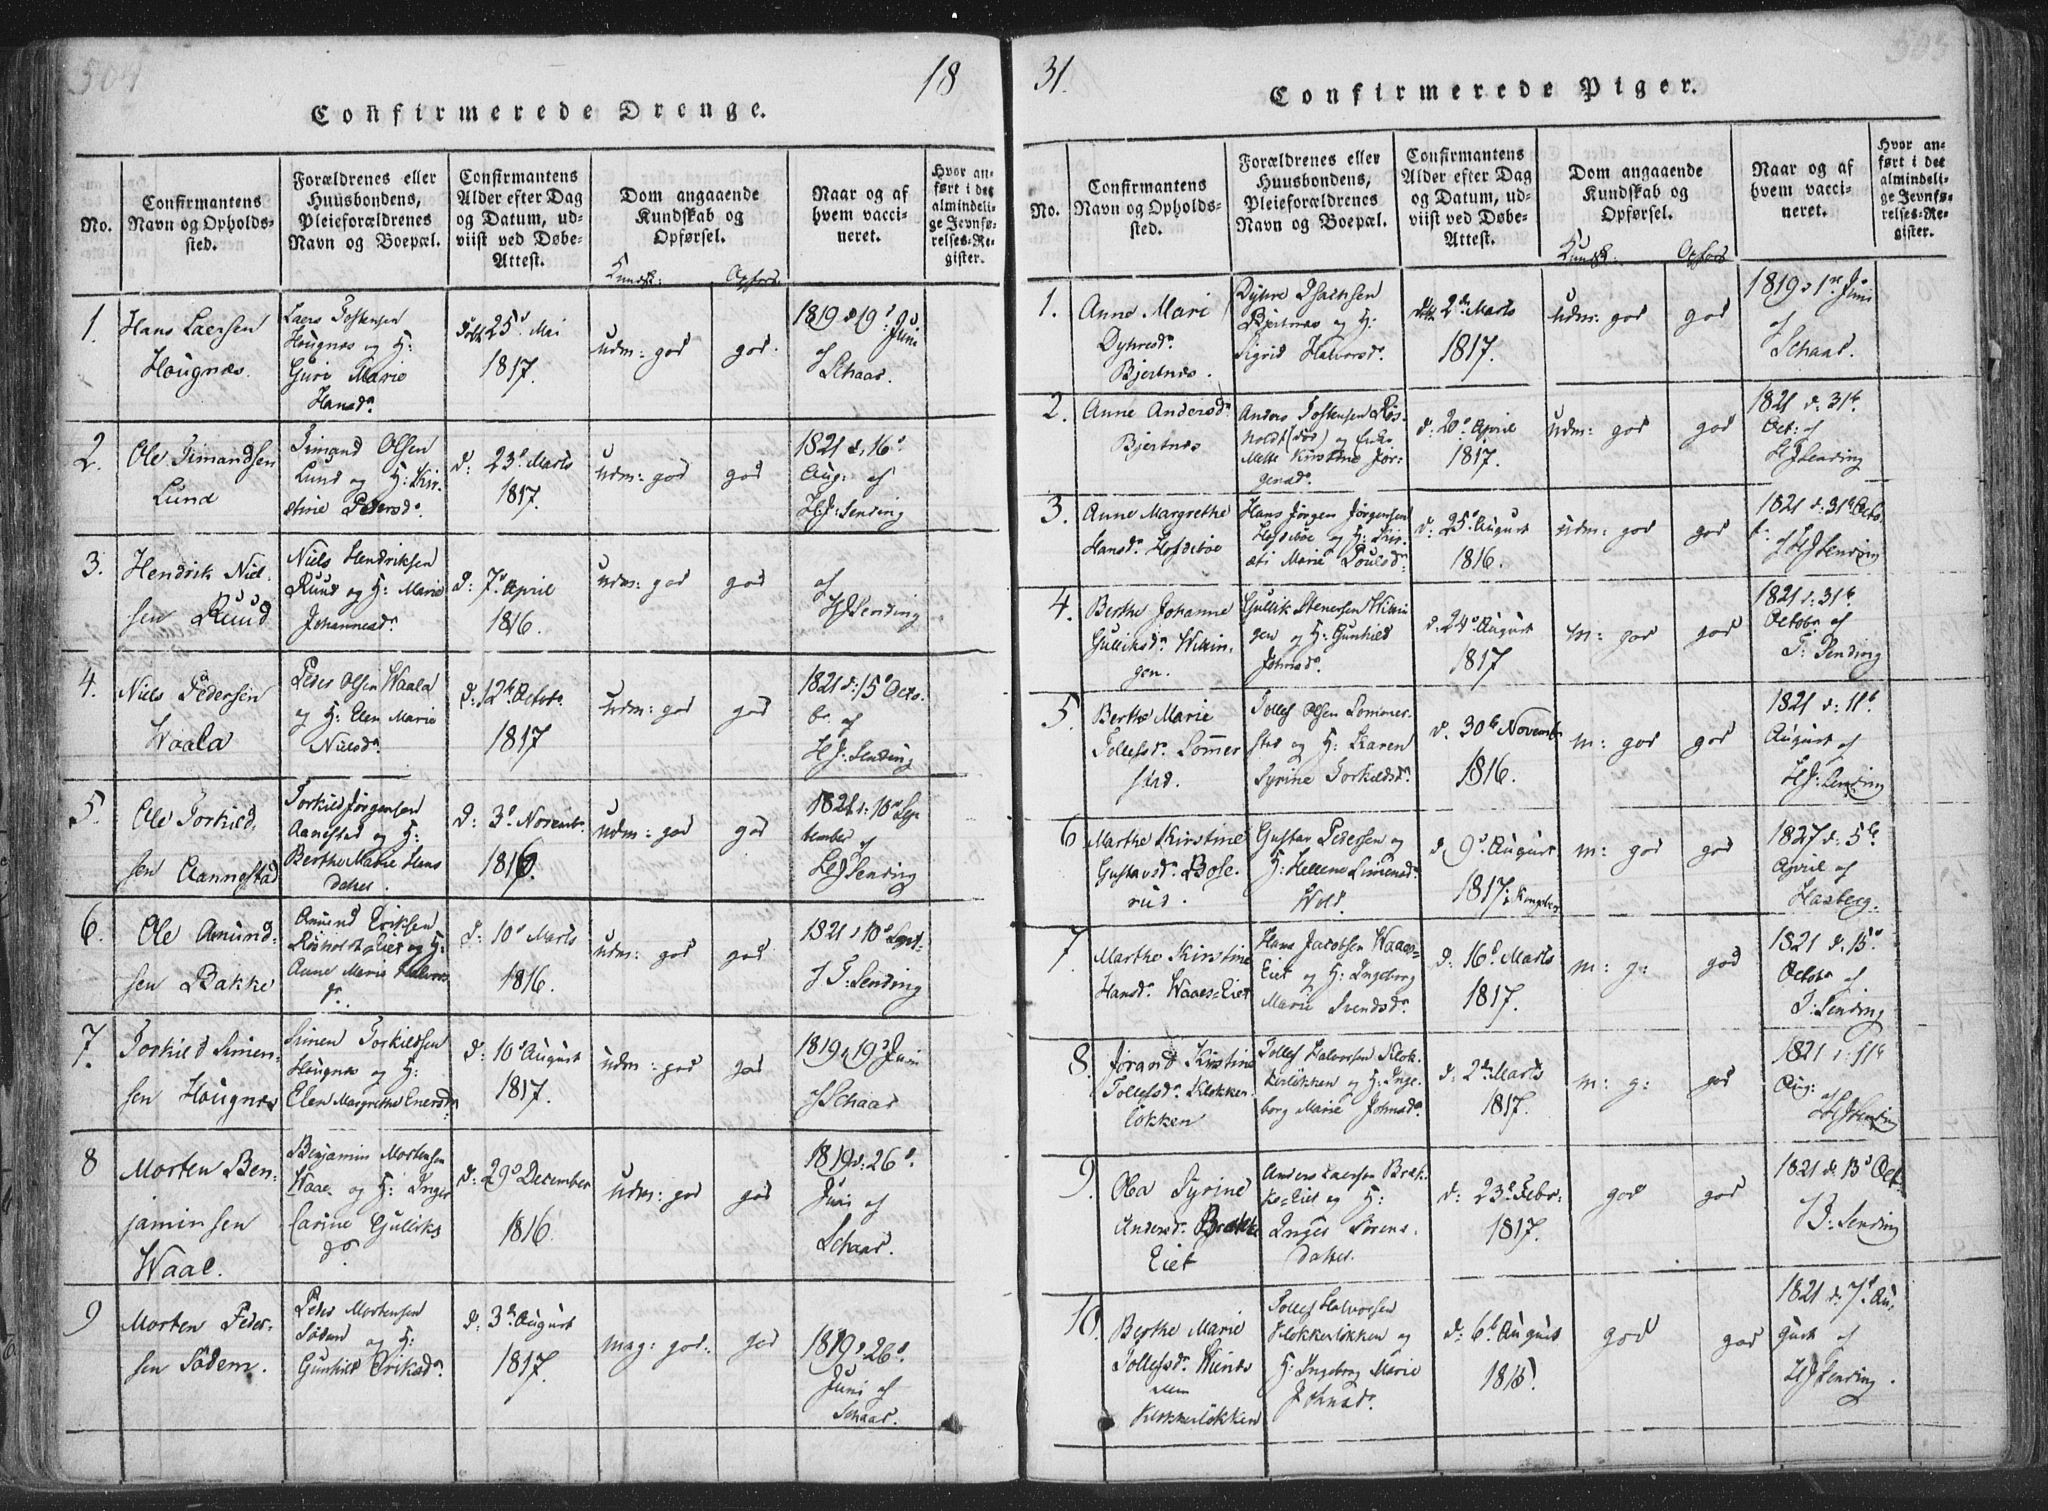 504
18
Confirmerede Drenge.
No.
Confirmantens
Navn og Opholds-
sted.
Forældrenes eller
Huusbondens,
Pleieforældrenes
Navn og Boepæl.
Confirmantens
Alder efter Dag
og Datum, ud-
viist ved Døbe-
Attest.
Dom angaaende
Kundskab og
Opførsel.
Kundsk:
Opførs.
Naar og af
hvem vacci-
neret.
Hvor an-
ført i det
almindeli-
ge Jevnfø-
relses-Re-
gister.
1.
Hans Laersen
Hougnæs.
Laers Tostensen
Hougnæs og H:
Guri Marie
Hansdr.
25d Mai
1817.
udm: god
god.
1819 d 19d
Juni
af Schaar.
2.
Ole Timandsen
Lund
Timand Olsen
Lund og H: Kir-
stine Pedersdr.
d: 23d Marts
1817.
udm: god
god
1821 d: 16d
Aug: af
HJ: Sending
3.
Hendrik Niel-
sen Ruud
Niels Hendriksen
Ruud og H: Marie
Johannesdr.
d: 7d April
1816.
udm: god
god
af
HJ Sending
4.
Niels Pedersen
Waala
Peder Olsen Waala
og H: Elen Marie
Nielsdr.
d: 12te Octobr.
1817
udm: god
god
1821 d: 15d Octo-
br. af
HJ: Sending
5.
Ole Torkild-
sen Aannestad
Torkild Jørgensen
Aanestad og H:
Berthe Marie Hans
datter.
d: 3d Novembr.
1816.
udm: god
god
1821 d: 10d Sep-
tember af
HJ Sending
6.
Ole Amund-
sen Bakke
Amund Eriksen
Røsholdt Eiet og H:
Anne Marie Halvors
dr.
d: 10d Marts
1816.
udm: god
god
1821 d 10d Sept.
af J: Sending
7.
Torkild Simen-
sen Hougnæs
Simen Torkildsen
Hougnæs og H:
Elen Margrethe Enersdr.
d: 10d August
1817.
udm: god
god
1819 d 19d Juni
af Schaar
8
Morten Ben-
jaminsen
Waal.
Benjamin Mortensen
Waae og H: Inger
Carine Gulliks
dr.
d: 29d December
1816.
udm: god
god
1819 d: 26d.
Juni af
Schaar.
9
Morten Peder-
sen Sødem.
Peder Mortensen
Sødem og H:
Gunhild Eriksdr.
d: 3de August
1817.
mag: god.
god
1819 d 26d.
Juni af
Schaar.
505
31.
Confirmerede Piger.
No.
Confirmantens
Navn og Opholds-
sted.
Forældrenes eller
Huusbondens,
Pleieforældrenes
Navn og Boepæl.
Confirmantens
Alder efter Dag
og Datum, ud-
viist ved Døbe-
Attest.
Dom angaaende
Kundskab og
Opførsel.
Kundsk:
Opførs
Naar og af
hvem vacci-
neret.
Hvor an-
ført i det
almindeli-
ge Jevnfø-
relses-Re-
gister.
1.
Anne Mari
Dyhresdr.
Bjertnæs.
Dyhre Isachsen
Bjertnæs og H:
Sigrid Halvorsdr.
2den Marts
1817.
udm: god
god
1819 d 1ste Juni
af
Schaar.
2.
Anne Andersdr.
Bjertnæs
Anders Tostensen Røs-
holdt (død) og Enke
Mette Kirstine Jør-
gensdr.
d: 20d April
1817.
udm: god
god
1821 d: 31te
Oct: af
HJ Sending
3.
Anne Margrethe
Hansdr. Hofsiboe
Hans Jørgen Jørgensen
Hofsiboe og H: Kir-
sti Marie Poulsdr.
d: 25d August
1816.
udm: god
god
1821 d: 31te Octo
br. af HJ Sending
4.
Berthe Johanne
Gulliksdr. Wikin-
gen.
Gullik Stenersen Wikin
gen og H: Gunhild
Johnsdr.
d: 24d August
1817
m: god
god
1821 d: 31te
Octobr af
J: Sending
5
Berthe Marie
Tollefsdr. Sommer
stad.
Tollef Olsen Sommer-
stad og H: Karen
Syrine Torkildsdr.
d. 30te Novembr
1816.
m: god
god
1821 d: 11te
August af
HJ: Sending
6
Marthe Kirstine
Gustavsdr. Bole-
rud.
Gustav Pedersen og
H: Hellene Simensdr.
Wold.
d 9d August
1817. Kongsber
m: god
god
1827 d: 5te
April af
Hasberg.
7.
Marthe Kirstine
Hansdr. Waaes=Eiet
Hans Jacobsen Waaes-
Eiet og H: Ingeborg
Marie Svendsdr.
d: 16d Marts
1817.
m: g:
god
1821 d. 15d
Octobr af
J: Sending
8.
Jorand Kirstine
Tollefsdr. Klokker
løkken
Tollef Halvorsen Klok-
kerløkken og H: Inge-
borg Marie Johnsdr.
d: 2den Marts
1817.
m: g:
god
1821 d: 11te
Aug: af
HJ Sending
9.
Olea Syrine
Andersdr. Brække
Eiet
Anders Laersen Bræk-
ke=Eiet og H:
Inger Sørens-
datter.
d: 23d Febr.
1817.
god
god
1821 d: 13d Oct.
af J: Sending
10.
Berthe Marie
Tollefsdr.
Klokkerløkken
Tollef Halvorsen
Klokkerløkken og
H: Ingeborg Marie
Johnsdr.
d: 6te August
1815.
god
god
1821 d. 7d Au-
gust af
HJ Sending.